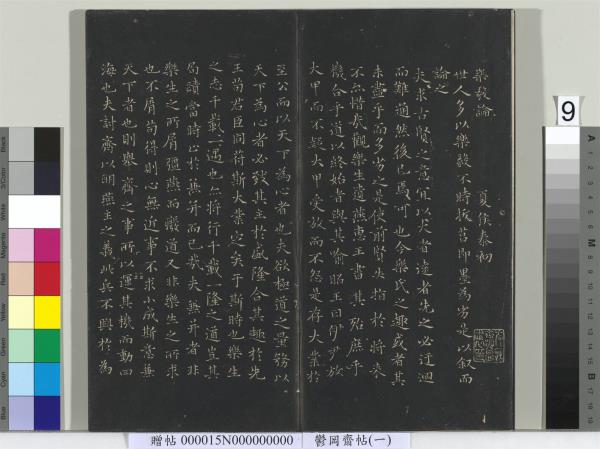 樂毅論
夏侯泰初
世人多以樂毅不時拔莒即墨為劣是以叙而
論之
夫求古賢之意宜以大者遠者先之必迂迴
而難通然後已焉可也今樂氏之趣或者其
未盡乎而多劣之是使前賢失指於將來
不亦惜哉觀樂生遺燕惠王書其殆庶乎
機合乎道以終始者與其喻昭王曰伊尹放
大甲而不疑大甲受放而不怨是存大業於
至公而以天下為心者也夫欲極道之量務以
天下為心者必致其主於盛隆合其趣於先
王苟君臣同符斯大業定矣于斯時也樂生
之志千載一遇也亦將行千載一隆之道豈其
局蹟當時止於兼并而已哉夫兼并者非
樂生之所屑彊燕而廢道又非樂生之所求
也不屑苟得則心無近事不求小成斯意兼
天下者也則舉齊之事所以運其機而動四
海也夫討齊以明燕主之義此兵不興於為
9
贈帖 000015N000000000 鬱岡齋帖(一)
Black
3/Color
White
Magenta
Red
Yellow
Green
Cyan
Blue
A
M
B